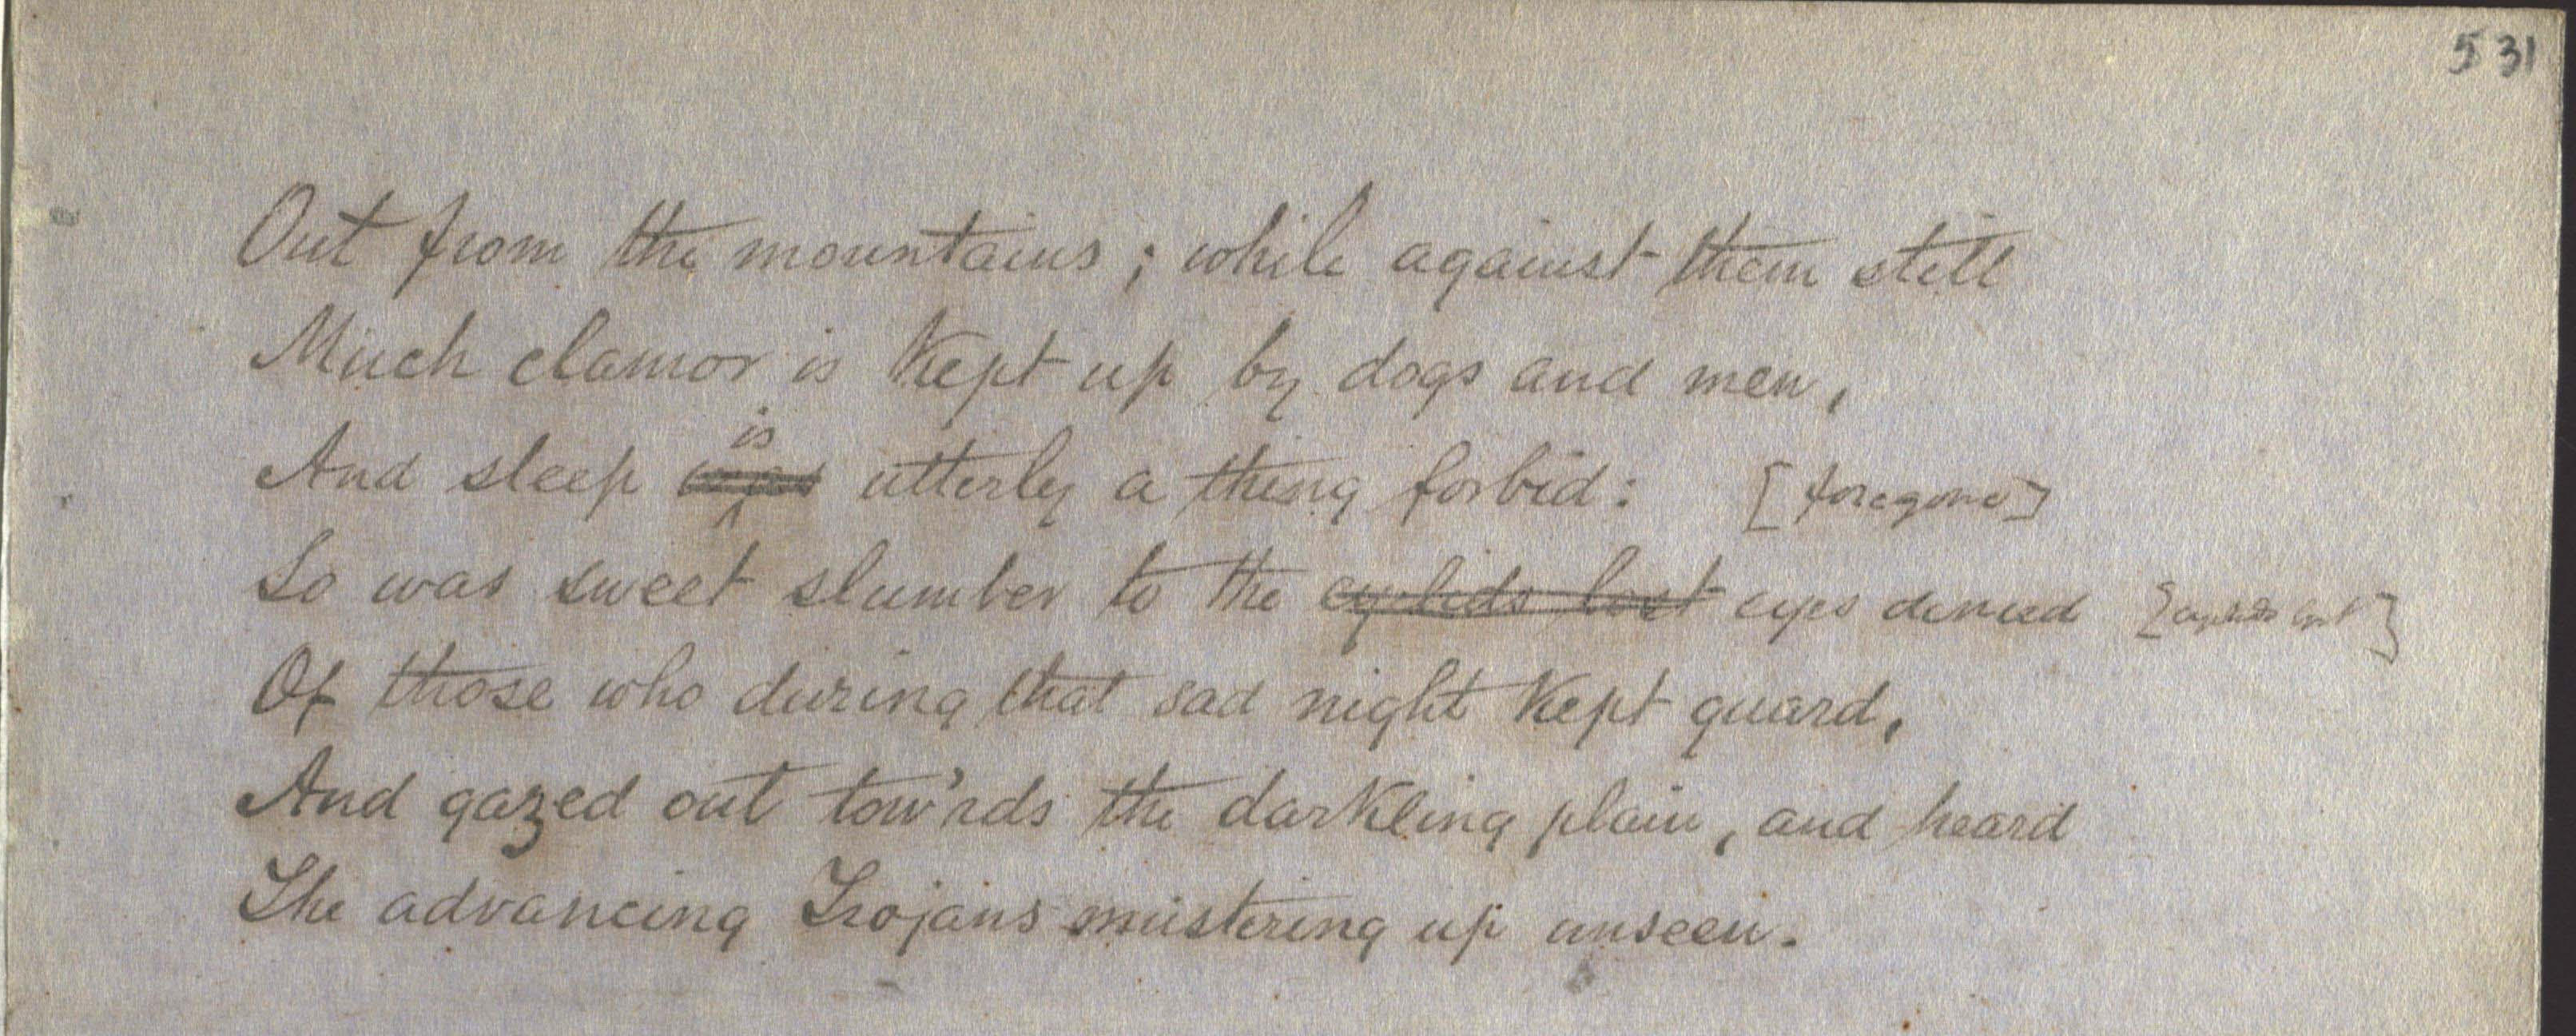 531
Out from the mountains; while against them still
Much clamor is kept up by dogs and men,
is
And sleep was utterly a thing forbid: [foregone]
So was sweet slumber to the eyelids lost eyes denied [eyelids lost]
Of those who during that sad night kept guard,
And gazed out tow'rds the darkling plain, and heard
The advancing Trojans mustering up unseen.